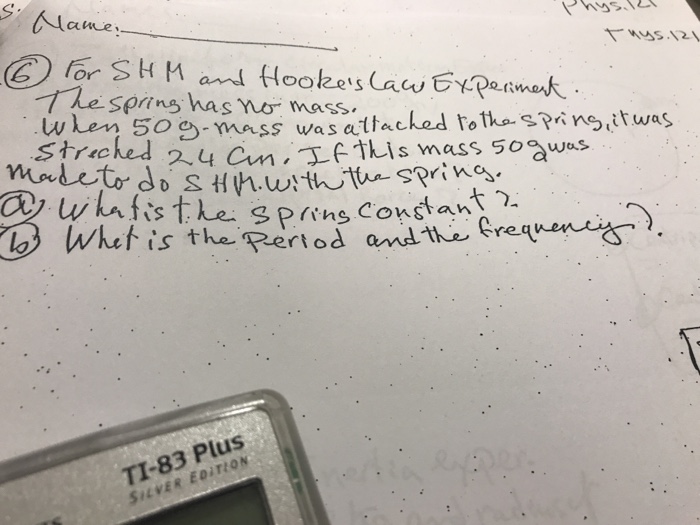 Name:
Phys.121
Phys.121
6 For SHM and Hooke's Law Experiment.
The spring has no mass.
When 50g-mass was attached to the spring, it was
Streched 24 Cm. If this mass 50g was
made to do SHM. with the spring.
a) What is the spring constant?
b) What is the Period and the frequency?
TI-83 Plus
SILVER EDITION